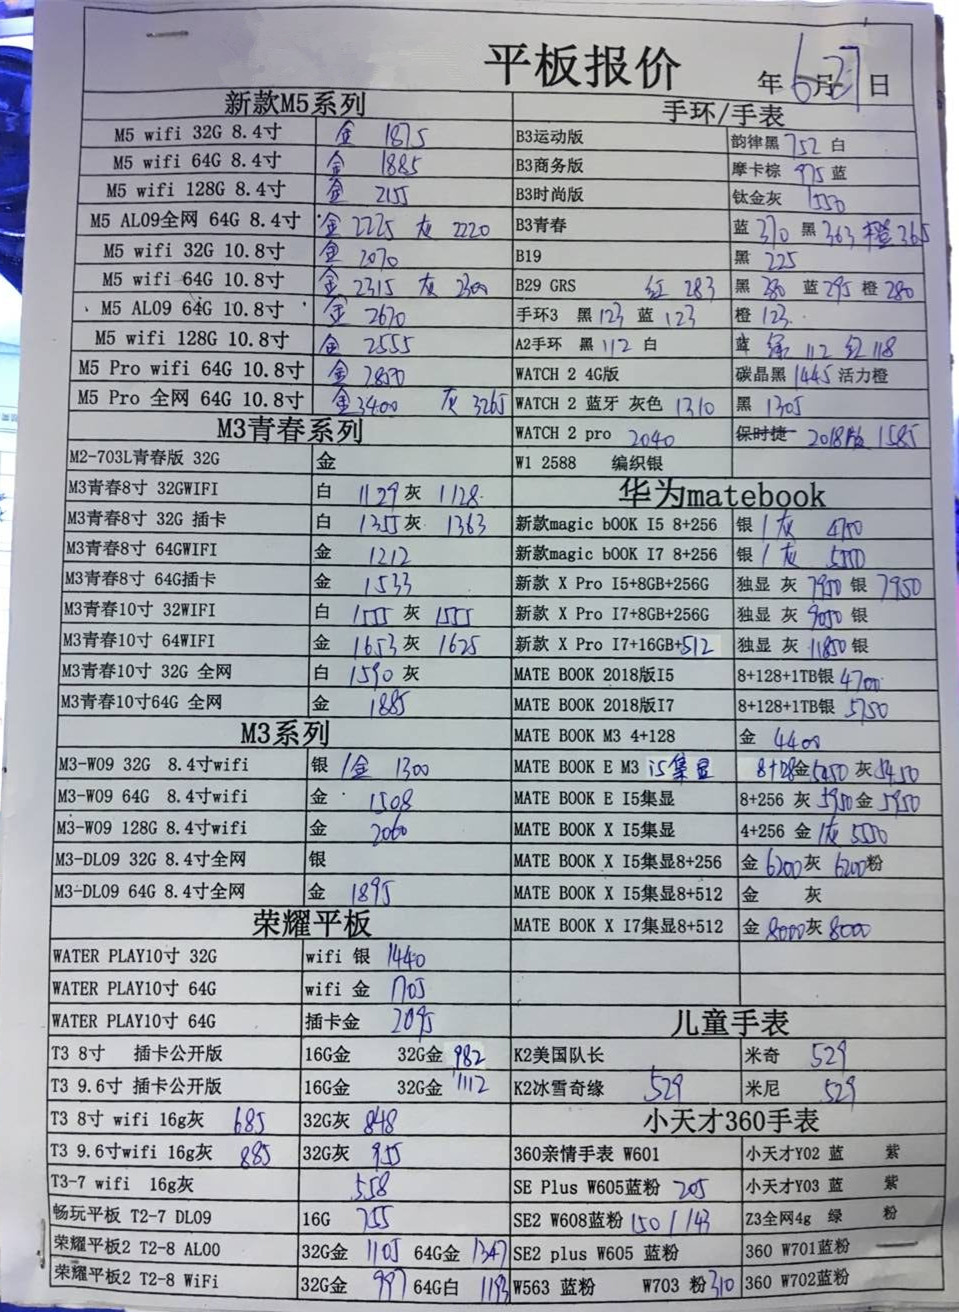 平板报价 年6月27日
新款M5系列
M5 wifi 32G 8.4寸 金 1875
M5 wifi 64G 8.4寸 金 1885
M5 wifi 128G 8.4寸 金 2155
M5 AL09全网 64G 8.4寸 金 2225 灰 2220
M5 wifi 32G 10.8寸 金 2070
M5 wifi 64G 10.8寸 金 2315 灰 2300
M5 AL09 64G 10.8寸 金 2670
M5 wifi 128G 10.8寸 金 2555
M5 Pro wifi 64G 10.8寸 金 2850
M5 Pro 全网 64G 10.8寸 金3400 灰 3265
M3青春系列
M2-703L青春版 32G 金
M3青春8寸 32GWIFI 白 1129 灰 1128
M3青春8寸 32G 插卡 白 1355 灰 1363
M3青春8寸 64GWIFI 金 1212
M3青春8寸 64G插卡 金 1533
M3青春10寸 32WIFI 白 1555 灰 1555
M3青春10寸 64WIFI 金 1653 灰 1625
M3青春10寸 32G 全网 白 1590 灰
M3青春10寸64G 全网 金 1885
M3系列
M3-W09 32G 8.4寸wifi 银 /金 1300
M3-W09 64G 8.4寸wifi 金 1508
M3-W09 128G 8.4寸wifi 金 2060
M3-DL09 32G 8.4寸全网 银
M3-DL09 64G 8.4寸全网 金 1895
荣耀平板
WATER PLAY10寸 32G wifi 银 1440
WATER PLAY10寸 64G wifi 金 1705
WATER PLAY10寸 64G 插卡金 2095
T3 8寸 插卡公开版 16G金 32G金 982
T3 9.6寸 插卡公开版 16G金 32G金 1112
T3 8寸 wifi 16g灰 685 32G灰 848
T3 9.6寸wifi 16g灰 885 32G灰 955
T3-7 wifi 16g灰 558
畅玩平板 T2-7 DL09 16G 755
荣耀平板2 T2-8 AL00 32G金 1105 64G金 1347
荣耀平板2 T2-8 WiFi 32G金 997 64G白 1193
手环/手表
B3运动版 韵律黑 752 白
B3商务版 摩卡棕 975 蓝
B3时尚版 钛金灰 1550
B3青春 蓝 370 黑 363 橙 365
B19 黑 225
B29 GRS 红 283 黑 280 蓝 295 橙 280
手环3 黑 123 蓝 123 橙 123
A2手环 黑 112 白 蓝 绿 112 红 118
WATCH 2 4G版 碳晶黑 1445 活力橙
WATCH 2 蓝牙 灰色 1310 黑 1305
WATCH 2 pro 2040 保时捷 2018版 1585
W1 2588 编织银
华为matebook
新款magic bOOK I5 8+256 银 / 灰 4750
新款magic bOOK I7 8+256 银 / 灰 5550
新款 X Pro I5+8GB+256G 独显 灰 7950 银 7950
新款 X Pro I7+8GB+256G 独显 灰 9050 银
新款 X Pro I7+16GB+512 独显 灰 11850 银
MATE BOOK 2018版I5 8+128+1TB银 4700
MATE BOOK 2018版I7 8+128+1TB银 5750
MATE BOOK M3 4+128 金 4400
MATE BOOK E M3 i5集显 8+128金 5450 灰 5450
MATE BOOK E I5集显 8+256 灰 5950 金 5950
MATE BOOK X I5集显 4+256 金 /灰 5550
MATE BOOK X I5集显8+256 金 6200 灰 6200 粉
MATE BOOK X I5集显8+512 金 灰
MATE BOOK X I7集显8+512 金 8000 灰 8000
儿童手表
K2美国队长 米奇 529
K2冰雪奇缘 529 米尼 529
小天才360手表
360亲情手表 W601 小天才Y02 蓝 紫
SE Plus W605蓝粉 205 小天才Y03 蓝 紫
SE2 W608蓝粉 150 / 143 Z3全网4g 绿 粉
SE2 plus W605 蓝粉 360 W701蓝粉
W563 蓝粉 W703 粉 310 360 W702蓝粉